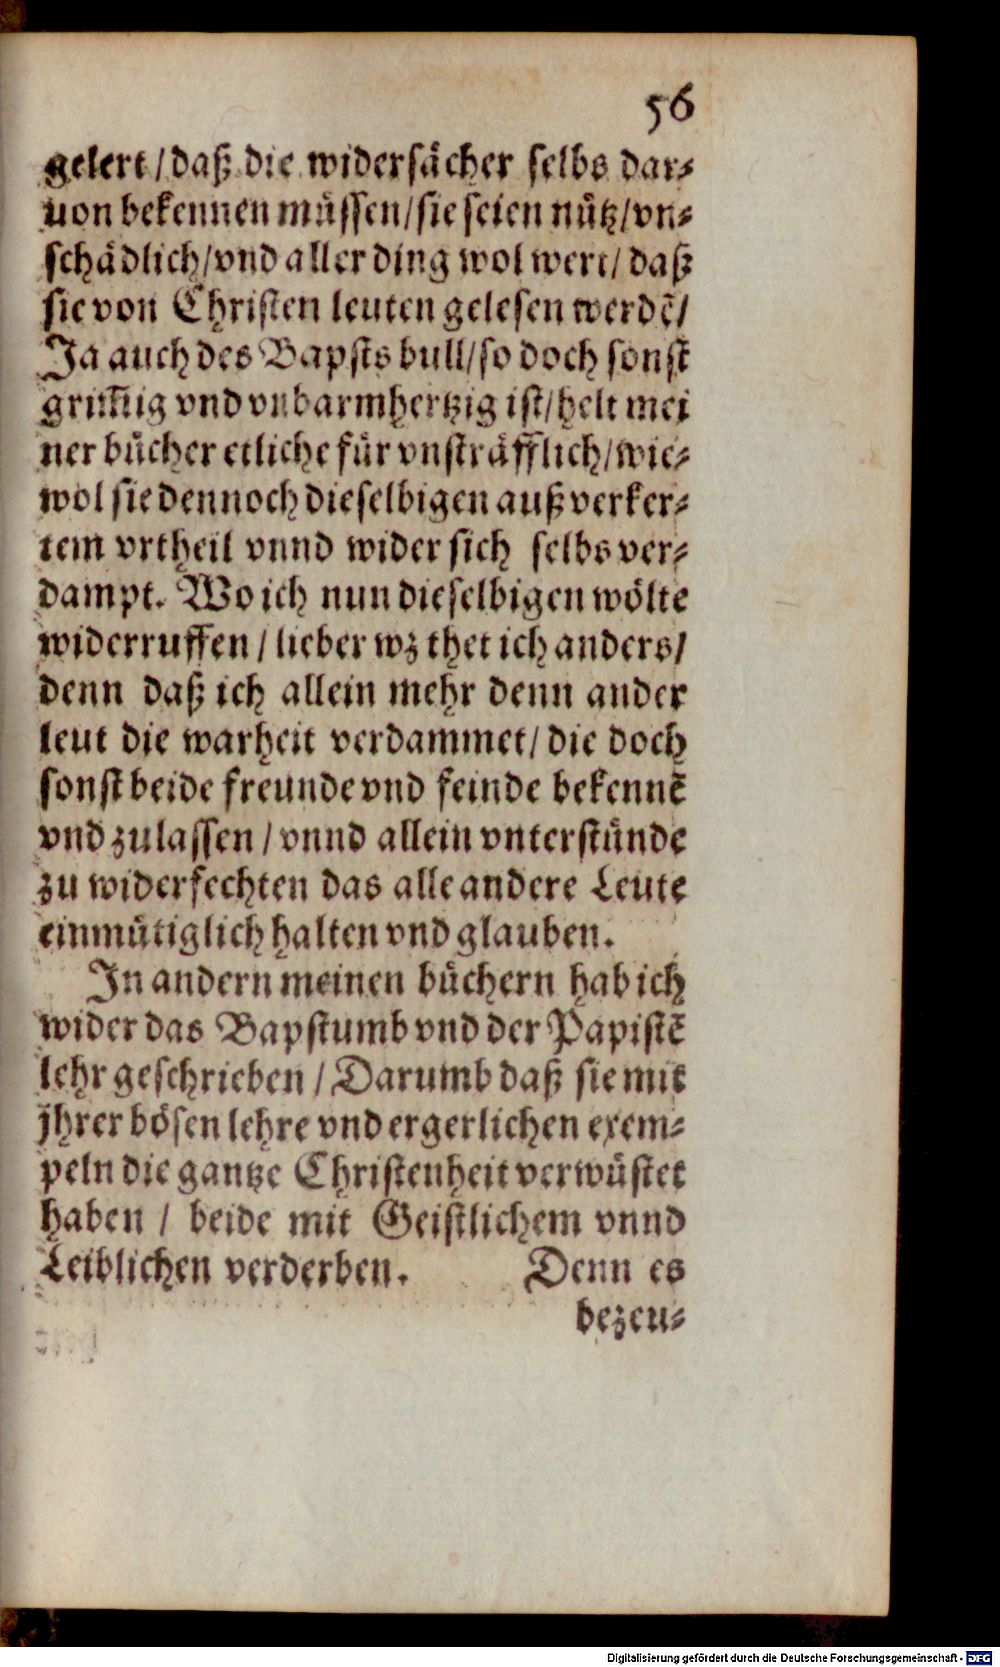 56
gelert / daß die widersächer selbs dar⸗
uon bekennen müssen / sie seien nütz / vn⸗
schädlich / vnd aller ding wol wert / daß
sie von Christen leuten gelesen werdē /
Ja auch des Bapsts bull / so doch sonst
grim̄ig vnd vnbarmhertzig ist / helt mei
ner bücher etliche für vnsträfflich / wie⸗
wol sie dennoch dieselbigen auß verker⸗
tem vrtheil vnnd wider sich selbs ver⸗
dampt. Wo ich nun dieselbigen wölte
widerruffen / lieber wz thet ich anders /
denn daß ich allein mehr denn ander
leut die warheit verdammet / die doch
sonst beide freunde vnd feinde bekennē
vnd zulassen / vnnd allein vnterstünde
zu widerfechten das alle andere Leute
einmütiglich halten vnd glauben.
In andern meinen büchern hab ich
wider das Bapstumb vnd der Papistē
lehr geschrieben / Darumb daß sie mit
jhrer bösen lehre vnd ergerlichen exem⸗
peln die gantze Christenheit verwüstet
haben / beide mit Geistlichem vnnd
Leiblichen verderben. Denn es
bezeu⸗
Digitalisierung gefördert durch die Deutsche Forschungsgemeinschaft - DFG